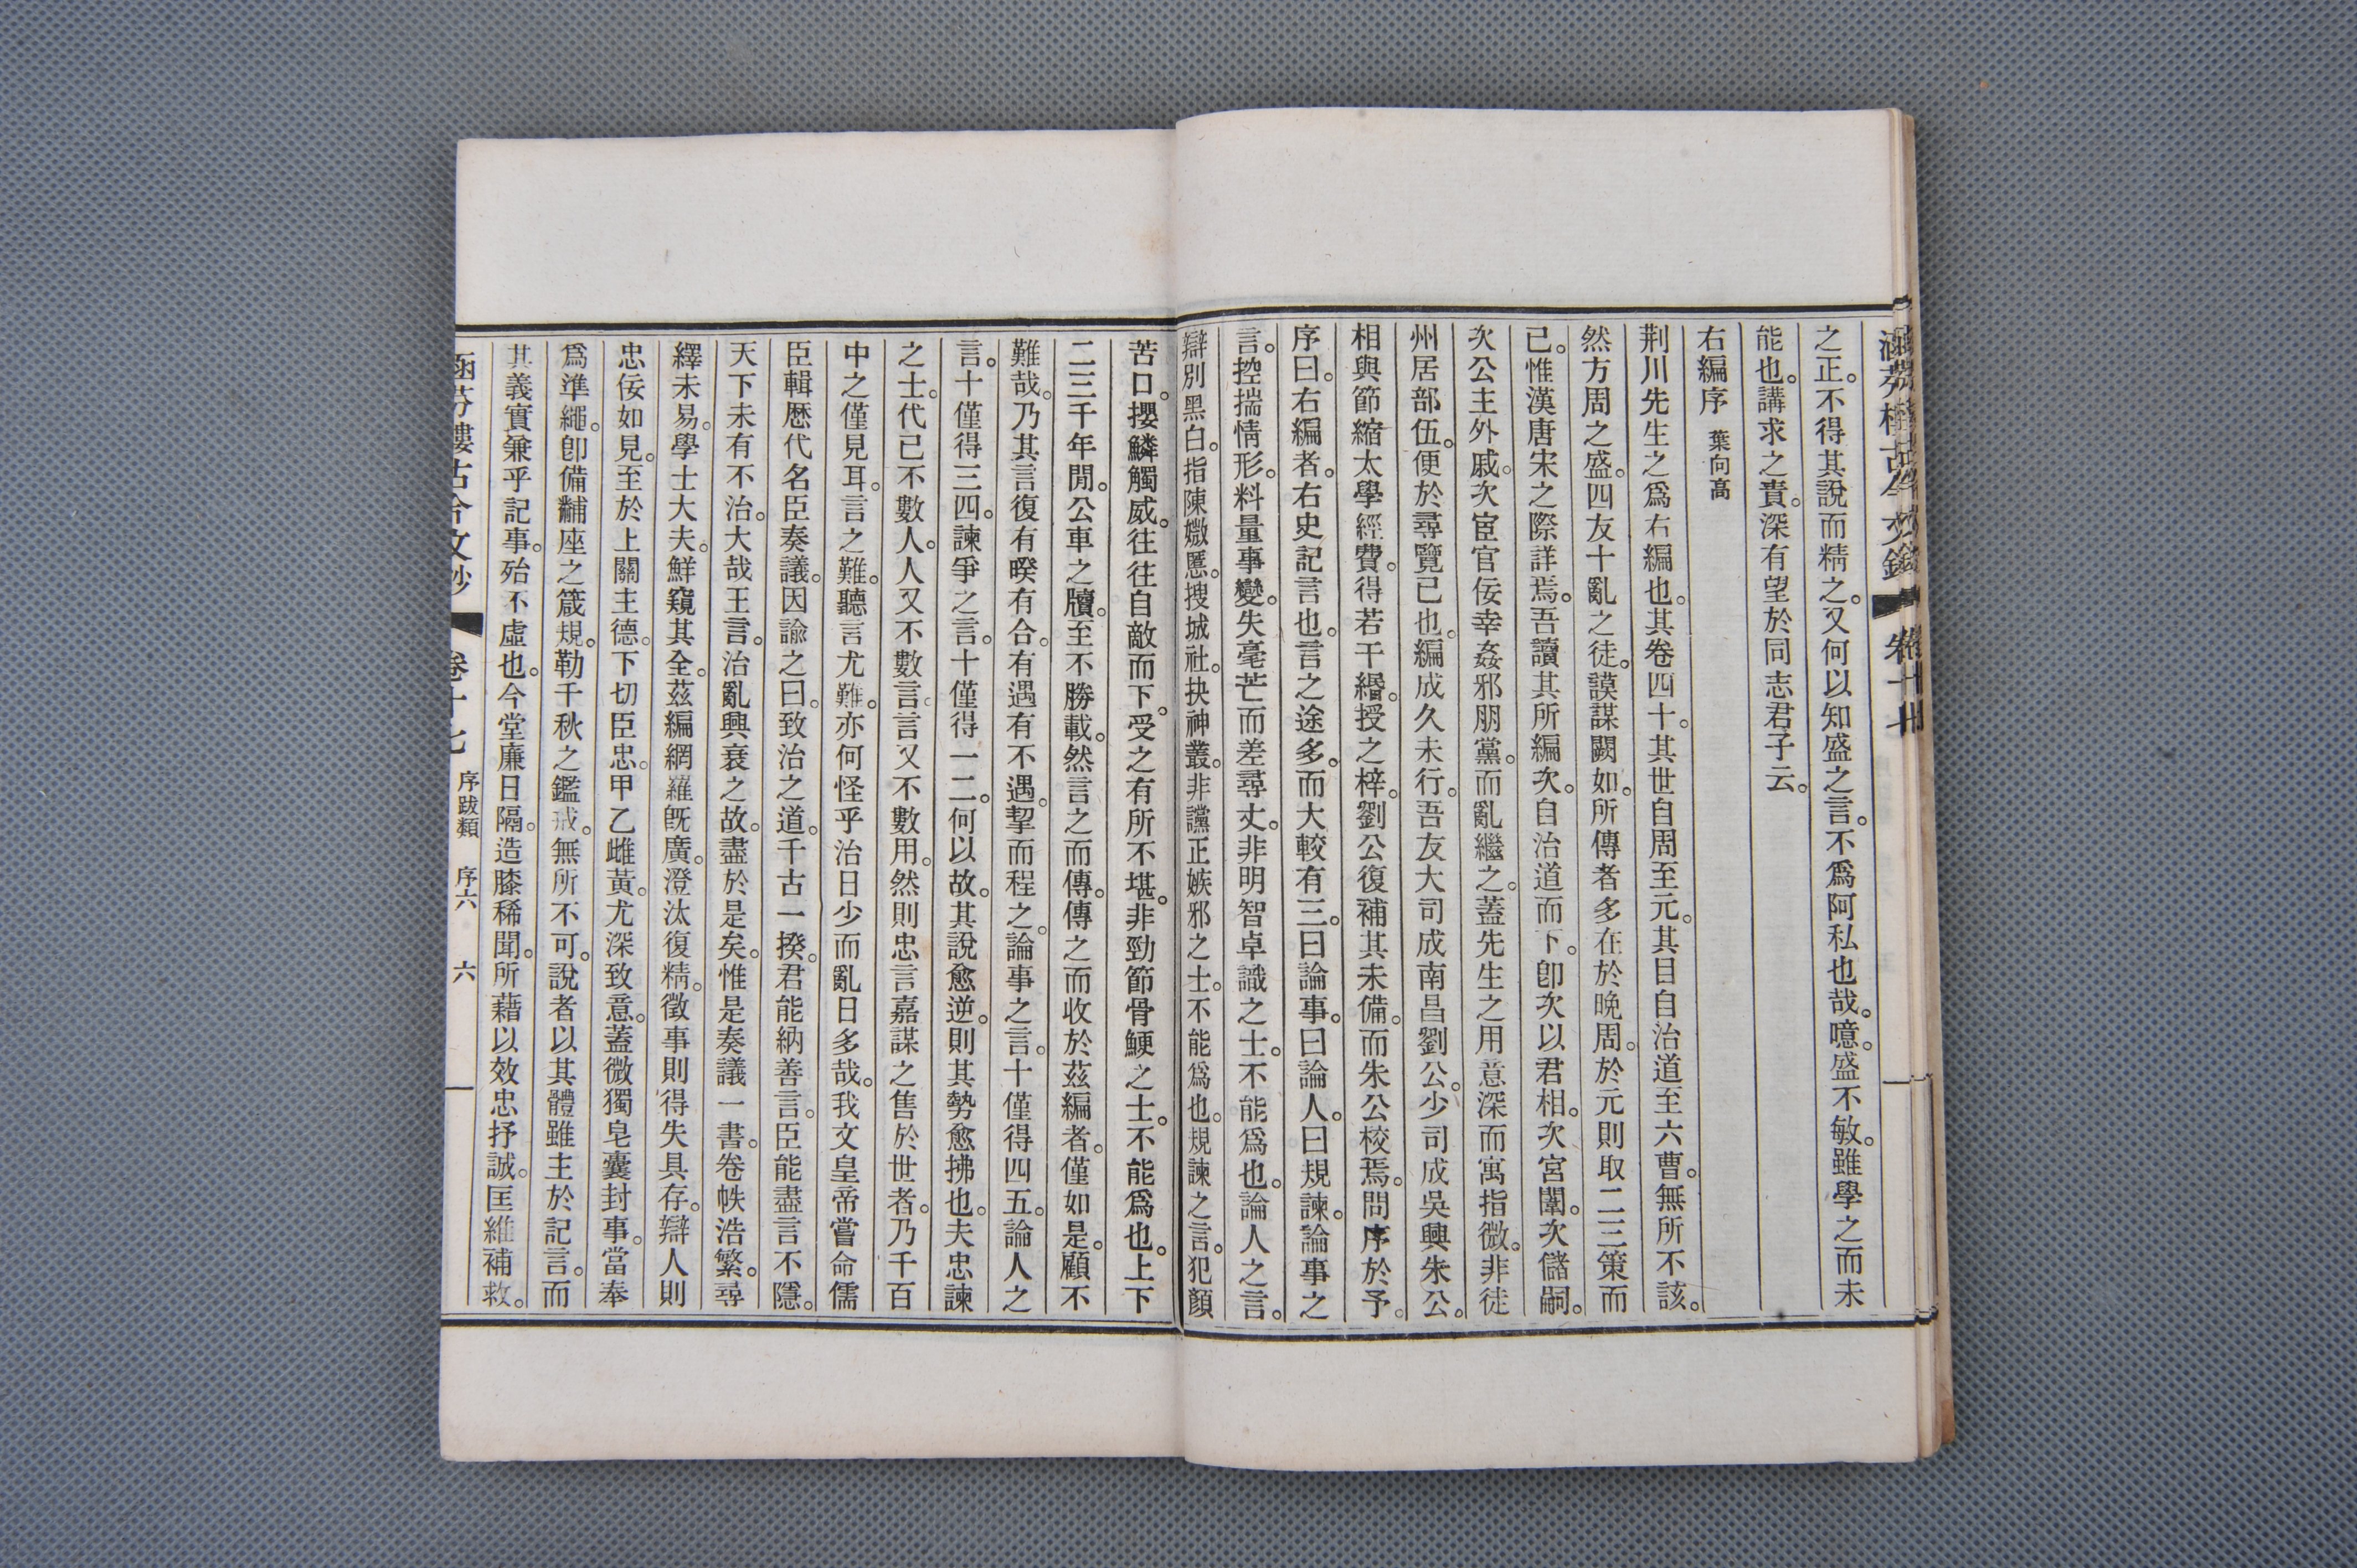 之正。不得其說而精之。又何以知盛之言。不爲阿私也哉。噫。盛不敏。雖學之而未
能也。講求之責。深有望於同志君子云。
右編序 葉向高
荆川先生之爲右編也。其卷四十。其世自周至元。其目自治道至六曹。無所不該。
然方周之盛。四友十亂之徒。謨謀闕如。所傳者多在於晚周。於元則取二三策而
已。惟漢唐宋之際詳焉。吾讀其所編次。自治道而下。卽次以君相。次宮闈。次儲嗣。
次公主外戚。次宦官佞幸姦邪朋黨。而亂繼之。蓋先生之用意深而寓指微。非徒
州居部伍。便於尋覽已也。編成久未行。吾友大司成南昌劉公。少司成吳興朱公。
相與節縮太學經費。得若干緡。授之梓。劉公復補其未備。而朱公校焉。問序於予。
序曰。右編者。右史記言也。言之途多。而大較有三。曰論事。曰論人。曰規諫。論事之
言。控揣情形。料量事變。失毫芒而差尋丈。非明智卓識之士。不能爲也。論人之言。
辯別黑白。指陳媺慝。搜城社。抉神叢。非讜正嫉邪之士。不能爲也。規諫之言。犯顏
苦口。攖鱗觸威。往往自敵而下。受之有所不堪。非勁節骨鯁之士。不能爲也。上下
二三千年閒。公車之牘。至不勝載。然言之而傳。傳之而收於茲編者。僅如是。顧不
難哉。乃其言復有暌有合。有遇有不遇。挈而程之。論事之言。十僅得四五。論人之
言。十僅得三四。諫爭之言。十僅得一二。何以故。其說愈逆。則其勢愈拂也。夫忠諫
之士。代已不數人。人又不數言。言又不數用。然則忠言嘉謀之售於世者。乃千百
中之僅見耳。言之難。聽言尤難。亦何怪乎治日少而亂日多哉。我文皇帝嘗命儒
臣輯歷代名臣奏議。因諭之曰。致治之道。千古一揆。君能納善言。臣能盡言不隱。
天下未有不治。大哉王言。治亂興衰之故。盡於是矣。惟是奏議一書。卷帙浩繁。尋
繹未易。學士大夫。鮮窺其全。茲編網羅旣廣。澄汰復精。徵事則得失具存。辯人則
忠佞如見。至於上關主德。下切臣忠。甲乙雌黃。尤深致意。蓋微獨皂囊封事。當奉
爲準繩。卽備黼座之箴規。勒千秋之鑑戒。無所不可。說者以其體雖主於記言。而
其義實兼乎記事。殆不虛也。今堂廉日隔。造膝稀聞。所藉以效忠抒誠。匡維補救。
涵芬樓古今文鈔 卷十七 序跋類 序六 六